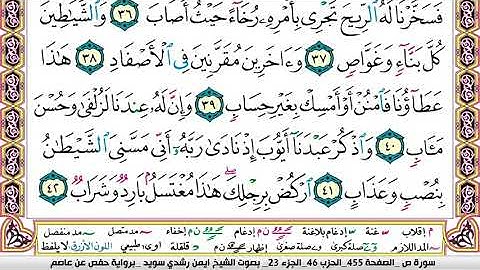 فَسَخَّرْنَا لَهُ ٱلرِّيحَ تَجْرِى بِأَمْرِهِۦ رُخَآءً حَيْثُ أَصَابَ ٣٦ وَٱلشَّيَٰطِينَ
كُلَّ بَنَّآءٍ وَغَوَّاصٍ ٣٧ وَءَاخَرِينَ مُقَرَّنِينَ فِى ٱلْأَصْفَادِ ٣٨ هَٰذَا
عَطَآؤُنَا فَٱمْنُنْ أَوْ أَمْسِكْ بِغَيْرِ حِسَابٍ ٣٩ وَإِنَّ لَهُۥ عِندَنَا لَزُلْفَىٰ وَحُسْنَ
مَـَٔابٍ ٤٠ وَٱذْكُرْ عَبْدَنَآ أَيُّوبَ إِذْ نَادَىٰ رَبَّهُۥٓ أَنِّى مَسَّنِىَ ٱلشَّيْطَٰنُ
بِنُصْبٍ وَعَذَابٍ ٤١ ٱرْكُضْ بِرِجْلِكَ ۖ هَٰذَا مُغْتَسَلٌۢ بَارِدٌ وَشَرَابٌ ٤٢
م إقلاب غنة إدغام بلاغنة ن م إدغام ن م إخفاء مد متصل مد منفصل
المد اللازم صلة كبرى صلة صغرى إظهار ن م قلقلة أوي طبيعي اللون الأزرق لا يلفظ
سورة ص _ الصفحة 455_ الحزب 46_ الجزء 23_ بصوت الشيخ ايمن رشدي سويد _ برواية حفص عن عاصم